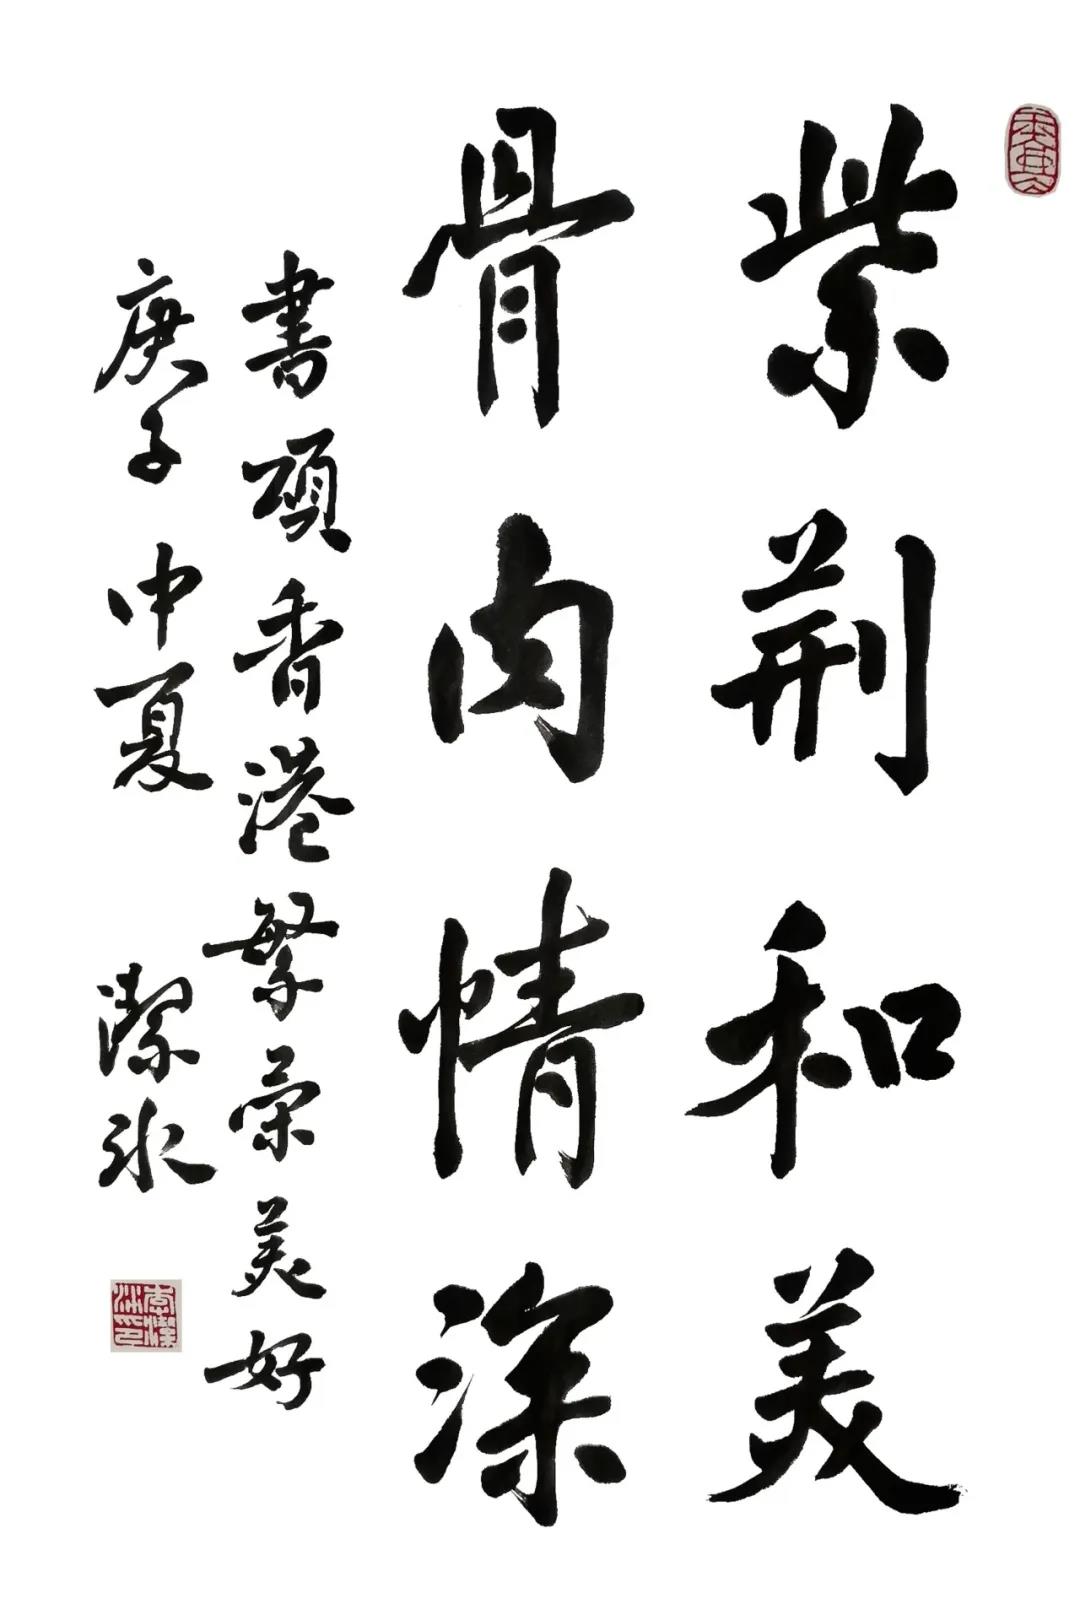 紫荆和美
骨肉情深
書頌香港繁榮美好
庚子中夏 潔冰